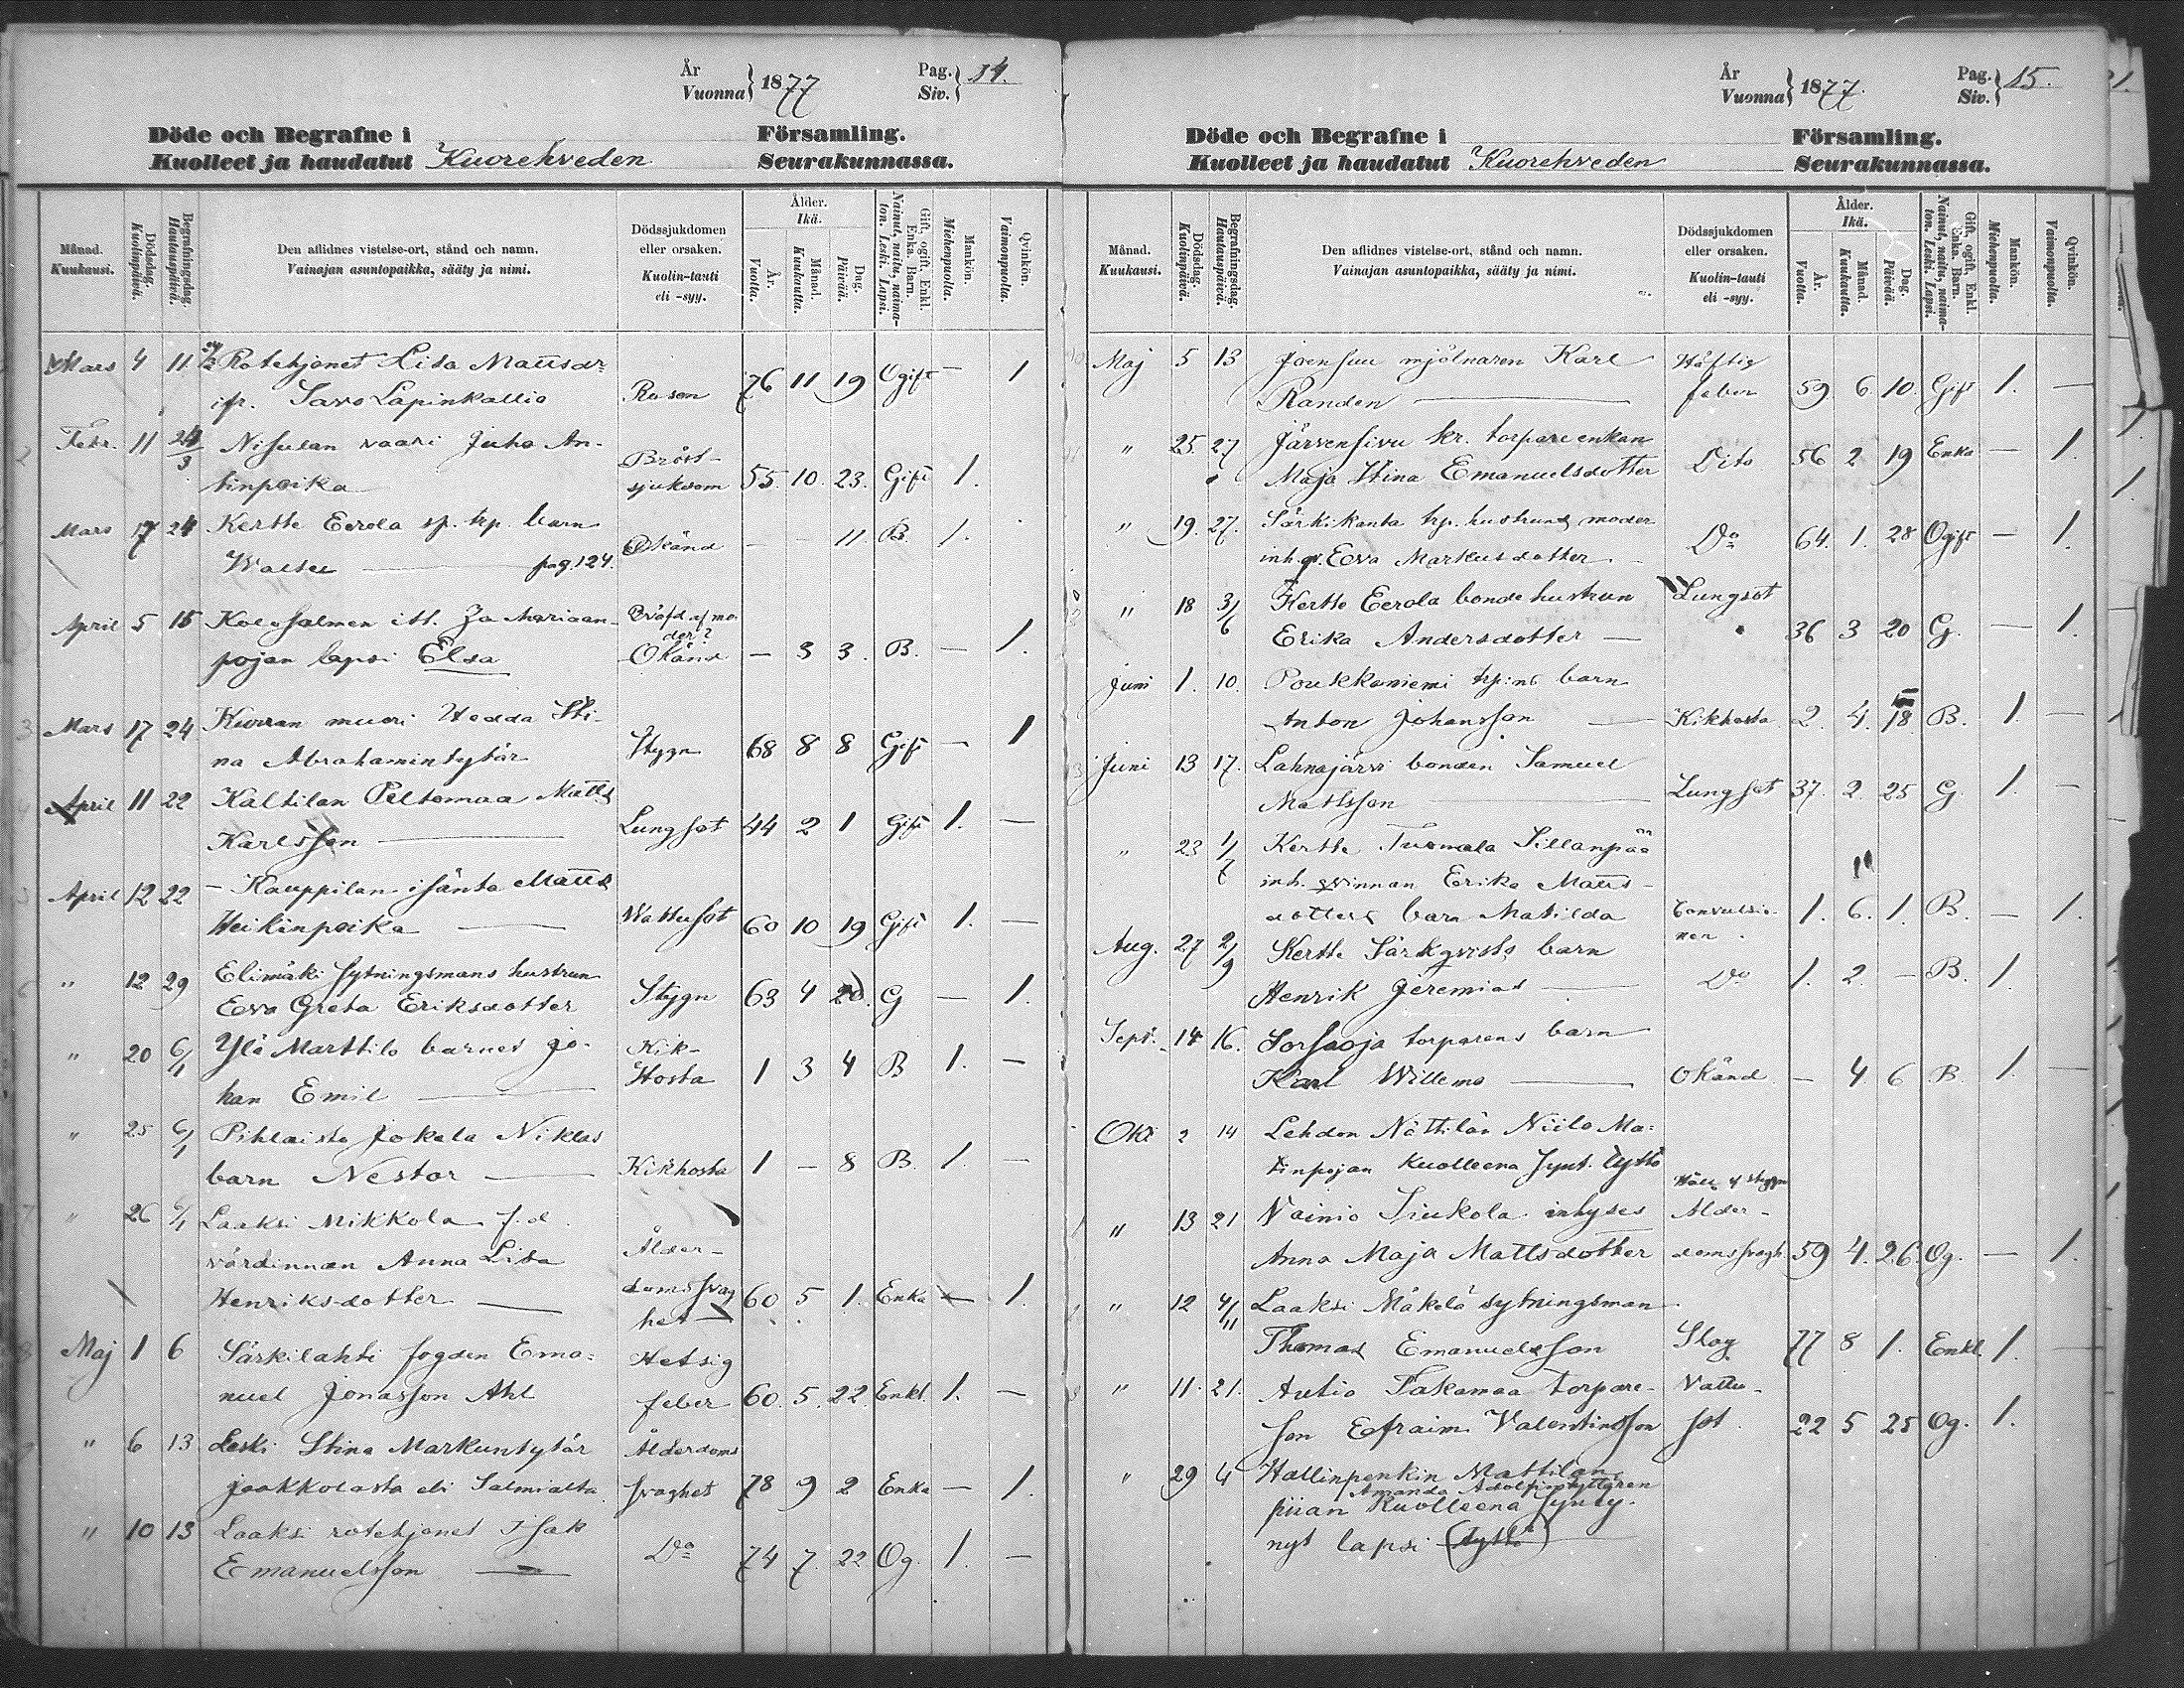 År
Vuonna } 1877
Pag.
Siv. } 14.
Döde och Begrafne i Församling.
Kuolleet ja haudatut Kuorehveden Seurakunnassa.
Månad. Kuukausi.
Dödsdag. Kuolinpäivä.
Begrafningsdag. Hautauspäivä.
Den aflidnes vistelse-ort, stånd och namn.
Vainajan asuntopaikka, sääty ja nimi.
Dödssjukdomen eller orsaken.
Kuolin-tauti eli -syy.
Ålder. Ikä.
År. Vuotta.
Månad. Kuukautta.
Dag. Päivää.
Gift, ogift, Enkl. Enka. Barn.
Nainut, naitu, naimaton. Leski. Lapsi.
Mankön. Miehenpuolta.
Qvinkön. Vaimonpuolta.
Mars 4 11 Rotehjonet Lisa Mattsdr
ifr. Savo Lapinkallio Rosen 76 11 19 Ogift — 1
Febr. 11 24/3 Nisulan vaari Juho An-
tinpoika Bröst-sjukdom 55. 10. 23. Gift 1.
Mars 17 24 Kertte Eerola sp. trp. barn
Walter — pag. 124. Okänd — — 11. B. 1.
April 5 15 Kolusalmen itt. Zamariaan-
pojan lapsi Elsa Qväfd af mo-der? Okänd — 3 3. B. — 1.
Mars 17 24 Kurran muori Hedda Sti-
na Abrahamintytär Stygn 68 8 8 Gift — 1
April 11 22 Kaltilan Peltomaa Matts
Karlsson — Lungsot 44 2 1 Gift 1. —
April 12 22 — Kauppilan isäntä Matts
Heikinpoika — Wattusot 60 10 19 Gift 1. —
" 12 29 Elimäki sytningsmans hustrun
Eva Greta Eriksdotter Stygn 63 4 20. G — 1.
" 20 6/1 Ylä Marttila barnet Jo-
han Emil — Kik-Hosta 1 3 4 B 1. —
" 25 6/1 Pihlaisto Jokela Niklas
barn Nestor — Kikhosta 1 — 8 B. 1. —
" 26 6/1 Laaksi Mikkola f.d.
värdinnan Anna Lisa
Henriksdotter — Ålder-domssvag het — 60 5 1. Enka — 1.
Maj 1 6 Särkilahti fogden Ema-
nuel Jonasson Ahl Hetsig feber 60. 5. 22. Enkl. 1. —
" 6 13 Leski Stina Markuntytär
Jaakkolasta eli Salmialta Ålderdoms svaghet 78 9 2 Enka — 1.
" 10 13 Laaksi rotehjonet Isak
Emanuelsson — Do 74 7. 22 Og. 1. —
År
Vuonna } 1877.
Pag.
Siv. } 15.
Döde och Begrafne i Församling.
Kuolleet ja haudatut Kuorehveden Seurakunnassa.
Månad. Kuukausi.
Dödsdag. Kuolinpäivä.
Begrafningsdag. Hautauspäivä.
Den aflidnes vistelse-ort, stånd och namn.
Vainajan asuntopaikka, sääty ja nimi.
Dödssjukdomen eller orsaken.
Kuolin-tauti eli -syy.
Ålder. Ikä.
År. Vuotta.
Månad. Kuukautta.
Dag. Päivää.
Gift, ogift, Enkl. Enka. Barn.
Nainut, naitu, naimaton. Leski. Lapsi.
Mankön. Miehenpuolta.
Qvinkön. Vaimonpuolta.
Maj 5 13 Joensuu mjölnaren Karl
Randen — Häftig feber 59. 6. 10. Gift 1. —
" 25. 27 Järvensivu kr. torpare enkan
Maja Stina Emanuelsdotter Dito 56 2 19 Enka — 1.
" 19. 27. Särkikanta trp. hustruns moder
inh. qv. Eva Markusdotter. Do 64. 1. 28 Ogift — 1.
" 18 3/6 Kertte Eerola bonde hustrun
Erika Andersdotter — Lungsot 36 3 20 G. — 1.
Juni 1. 10. Poukkaniemi trp:ns barn
Anton Johansson — Kikhosta 2. 4. 18. B. 1. —
Juni 13 17. Lahnajärvi bonden Samuel
Mattsson — Lungsot 37. 2. 25 G. 1. —
" 23 1/7 Kertte Tuomala Sillanpää
inh. qvinnan Erika Matts-
dotters barn Matilda Convulsio-ner. 1. 6. 1. B. — 1.
Aug. 27 2/9 Kertte Särkqvists barn
Henrik Jeremias — Do 1. 2. — B. 1.
Sept. 14 16. Sorsaoja torparens barn
Karl Willems — Okänd — 4. 6 B. 1. —
Okt 2 14 Lehdon Nättilän Niilo Ma-
tinpojan kuolleena synt. tyttö
" 13 21 Vainio Siukola inhyses Håll o. stygn
Anna Maja Mattsdotter Ålder-domssvagh. 59 4. 26. Og. — 1.
" 12 4/11 Laaksi Mäkelä sytningsman
Thomas Emanuelsson Slag 77 8 1. Enkl 1.
" 11. 21. Autio Takamaa torpare-
son Efraim Valentinsson Vattu-sot. 22 5 25 Og. 1.
" 29 4 Hallinpenkin Mattilan
Amanda Adolfintyttären
piian Kuolleena synty-
nyt lapsi (tyttö) —